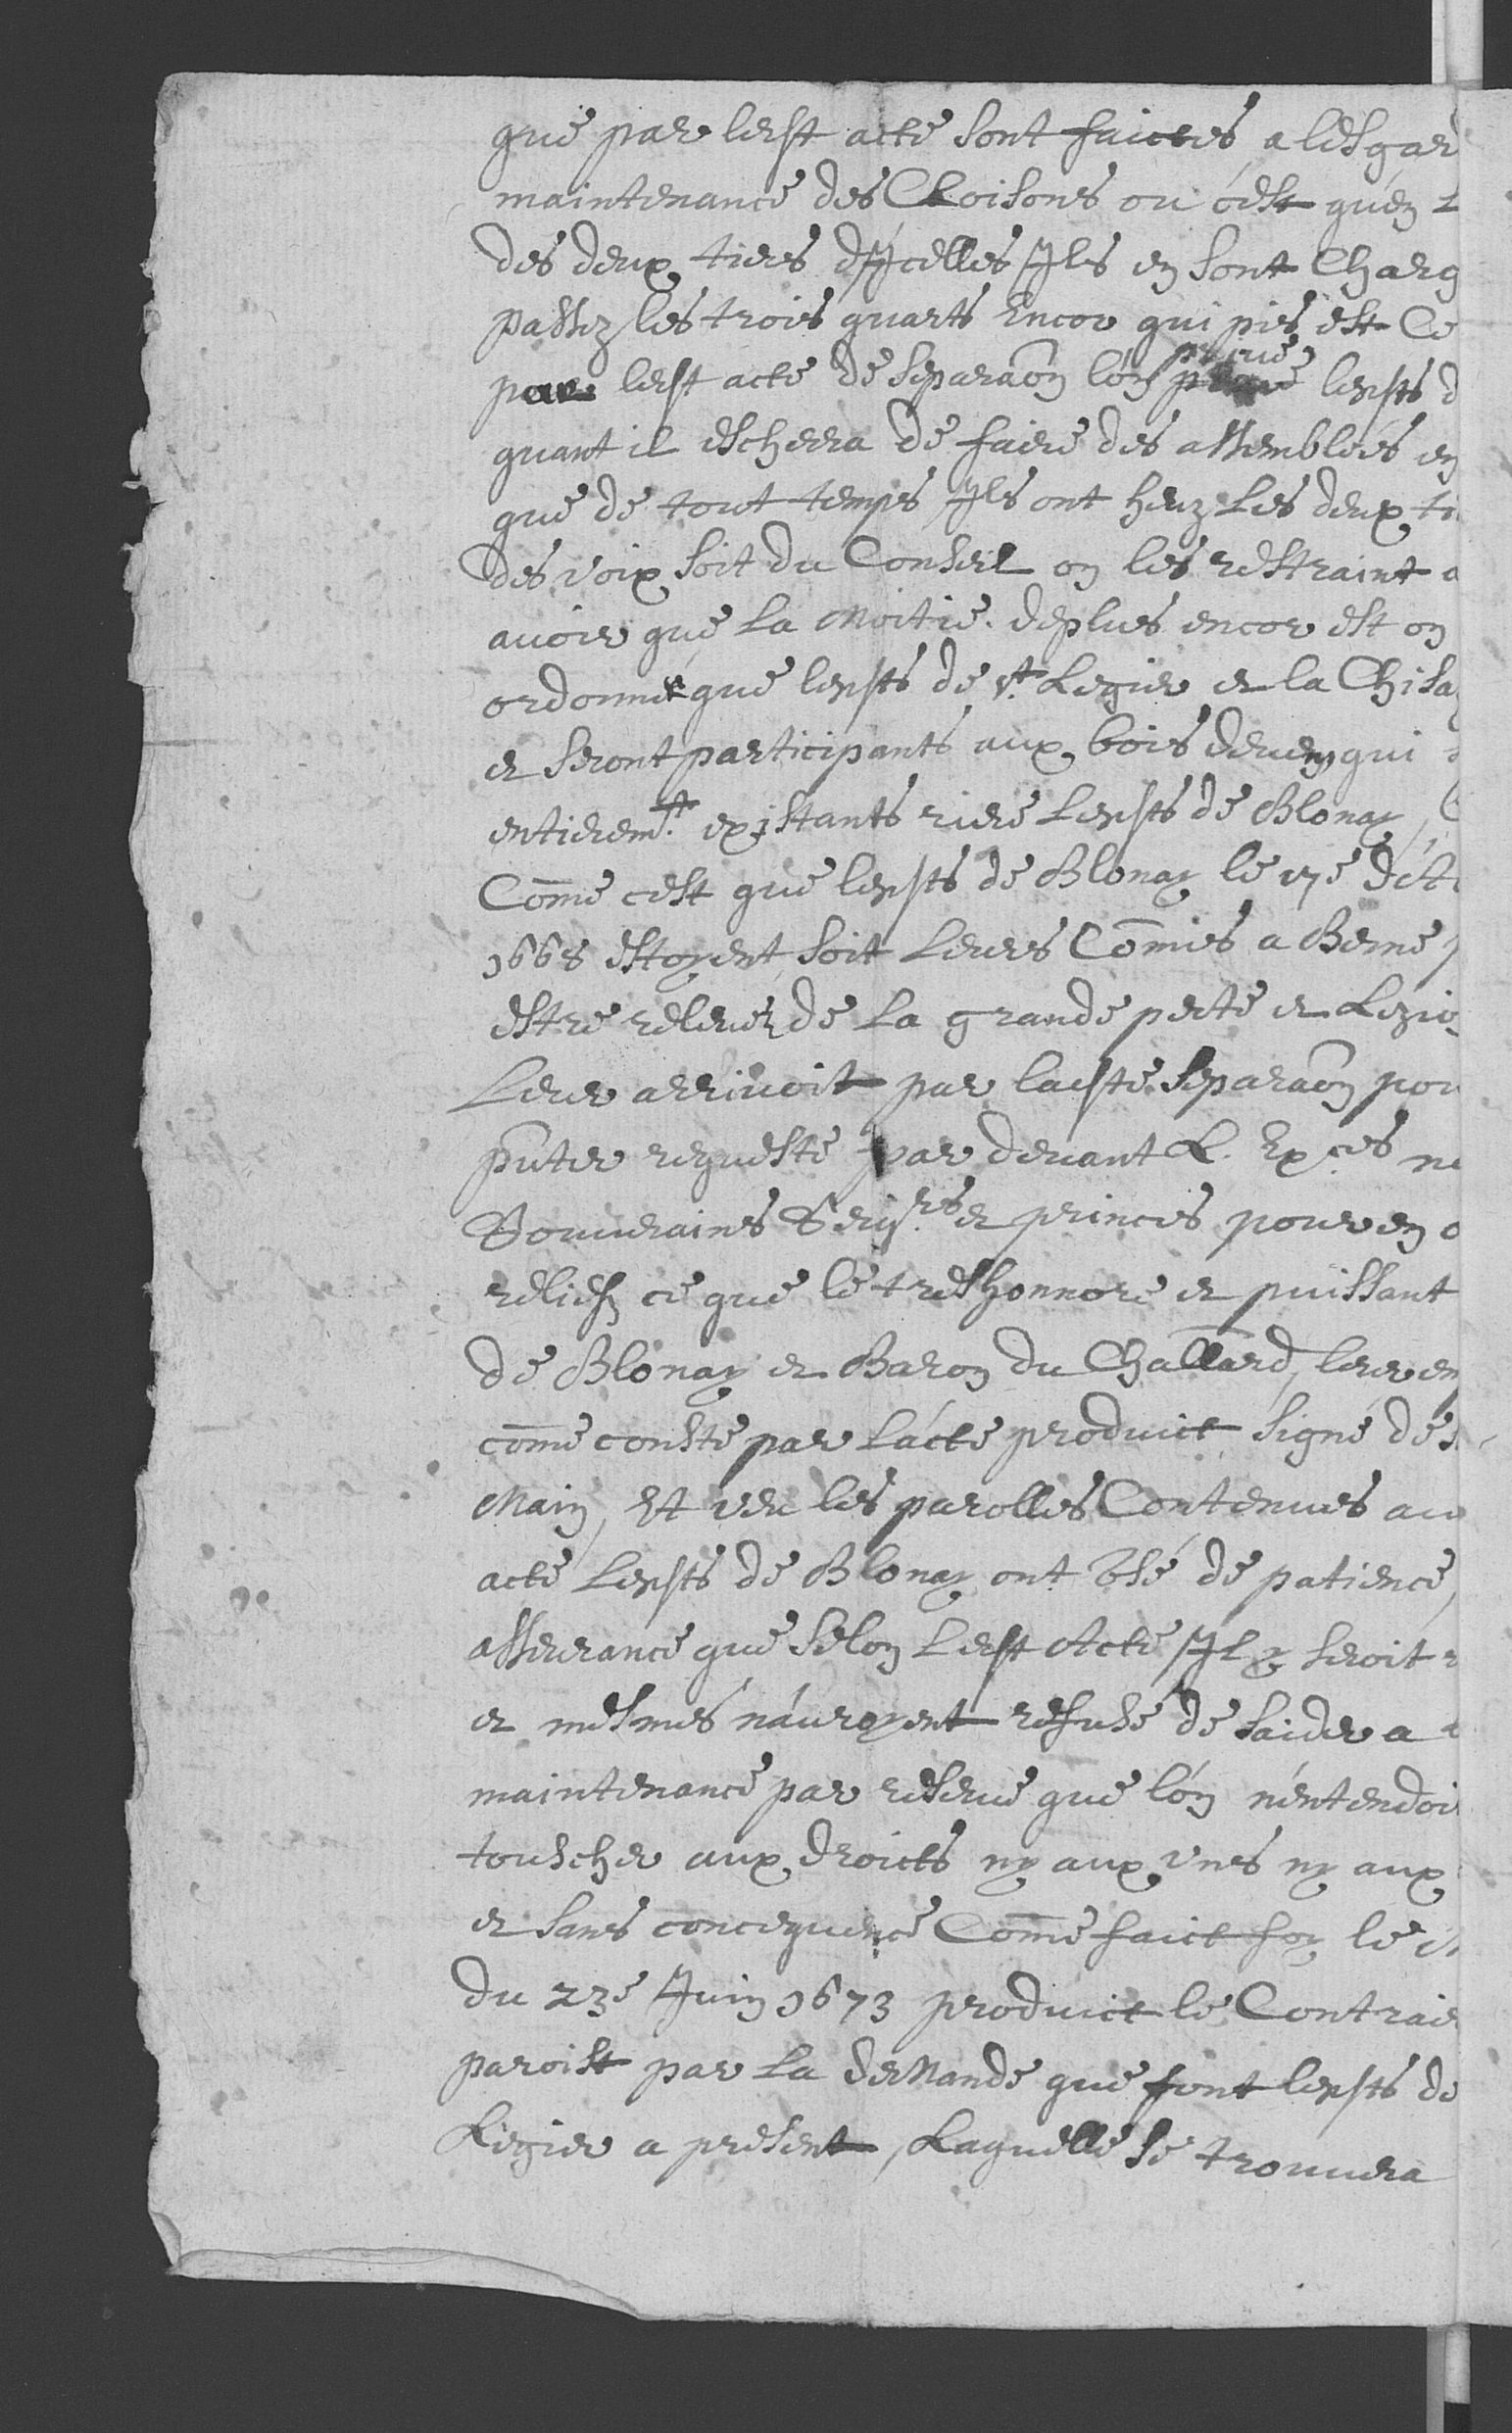 que par ledt acte sont faictes a lesgar
maintenance des Cloisons ou c'est qu'en
des deux tiers d'Jcelles Jls en sont Charg
passez les trois quarts Encor qui pis est Ce
par ledt acte de Separaõn l'on prive lesdts d
quant il escherra de faire des assemblées en
que de tout temps Jls ont heuz Les deux ti
des voix soit du Conseil on les restraint a
avoir que La Moitié. deplus encor est on
ordonné que lesdts de St. Legier et la Chisa
et seront participants aux bois deven qui
entieremt. existants riere Lesdts de Blonay
Come c'est que lesdts de Blonay le 17e
1668 estoyent soit Leurs Comis a Berne
estre relevez de La grande perte et Lezio
Leur arrivoit par ladte Separaõn pou
pñter requeste par devant L. Exces
Souverains Seigrs et princes pour en o
relief, ce que le tres honnoré et puissant
de Blonay et Baron du Challard, leur en
come conste par L'acte produict Signé de s
Main, Et veu les parolles Contenues au
acte Lesdts de Blonay ont Usé de patience,
asseurance que selon Ledt Acte Jl y seroit
et mesmes n'auroyent refusé de s'aider a
maintenance par reserve que l'on n'entendoi
touscher aux droicts ny aux unes ny aux
et sans concequence Come faict foy le
du 23e Juin 1673 produict le Contrai
paroist par La deMande que font lesdts de
Legier a present, Laquelle se trouvera